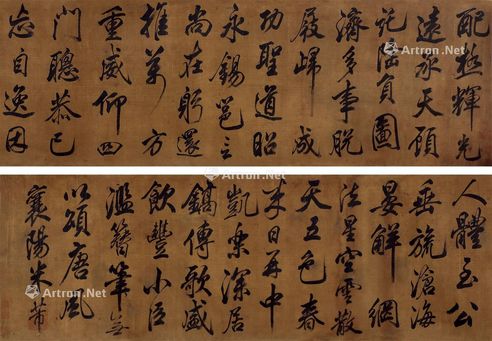 配極輝光
遠承天顧
託隆負圖
濟多事脫
屣歸成
功聖道昭
永錫邕言
尚在躬還
推萬方
重威仰四
門聰恭己
忘自逸因
人體至公
垂旒滄海
晏解網
法星空雲散
天五色春
來日再中
凱樂深居
鎬傳歌盛
飲豐小臣
濫簪筆無
以頌唐風
襄陽米芾
Artron.Net
Artron.Net
Artron.Net
Artron.Net
Artron.Net